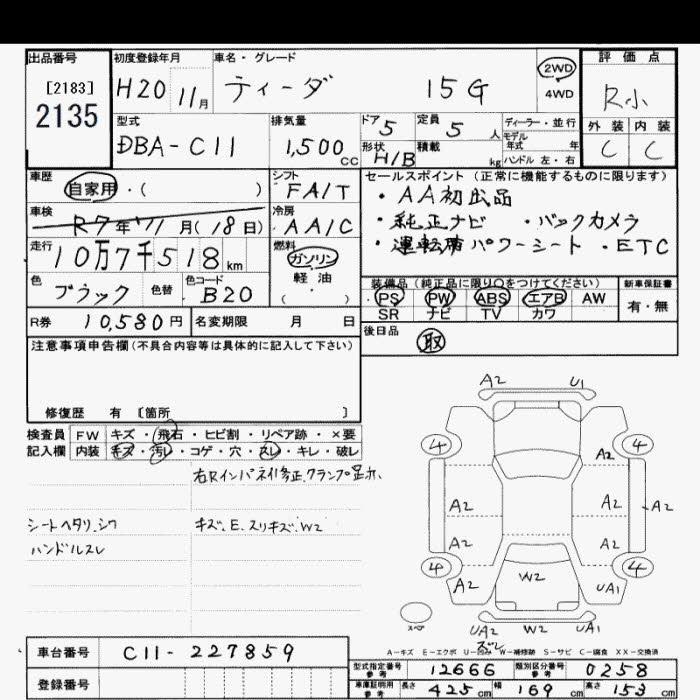 出品番号
[2183]
2135
初度登録年月
H20 11月
車名・グレード
ティーダ 15G
2WD
4WD
評価点
R小
外装 内装
C C
型式
DBA-C11
排気量
1,500 cc
ドア 5
定員 5 人
形状 H/B
積載 kg
ディーラー・並行
モデル年式 年
ハンドル 左・右
車歴
自家用・( )
シフト
FA/T
車検
R7年 11月(18日)
冷房
AA/C
走行
10万7千518km
燃料
ガソリン
軽油
( )
色
ブラック
色替
色コード
B20
R券 10,580円
名変期限 月 日
セールスポイント(正常に機能するものに限ります)
・AA初出品
・純正ナビ ・バックカメラ
・運転席パワーシート ・ETC
装備品(純正品に限り○をつけてください)
PS PW ABS エアB AW
SR ナビ TV カワ
新車保証書
有・無
後日品
取
注意事項申告欄(不具合内容等は具体的に記入して下さい)
修復歴 有 〔箇所 〕
検査員
記入欄
FW キズ・飛石・ヒビ割・リペア跡・×要
内装 キズ・汚レ・コゲ・穴・スレ・キレ・破レ
右Rインパネ修正、クランプ足
シートヘタリ、シワ
ハンドルスレ
キズ、E、スリキズ、W2
A2 U1
4 4
A2
A2 A2 A2
A2 A2
4 4
A2 W2 UA1
スペア
UA2 W2 UA1
ズレ
A-キズ E-エクボ U-凹み W-補修跡 S-サビ C-腐食 XX-交換済
車台番号 C11-227859
登録番号
型式指定番号 参考 12666
類別区分番号 参考 0258
車庫証明用 参考
長さ 425cm 幅 169cm 高さ 153cm